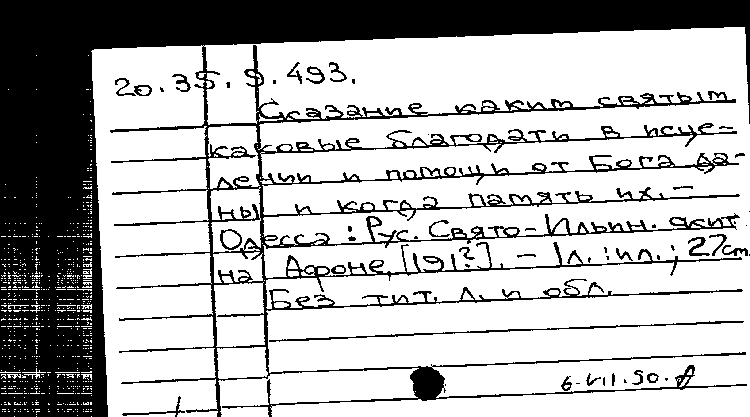 20.35.9.493.
Сказание каким святым
каковые благодать в исце-
лении и помощи от Бога да-
ны и когда память их. –
Одесса : Рус. Свято-Ильин. скит
на Афоне, [191?]. – 1л. : ил. ; 27см
Без тит. л. и обл.
6.VII.90.